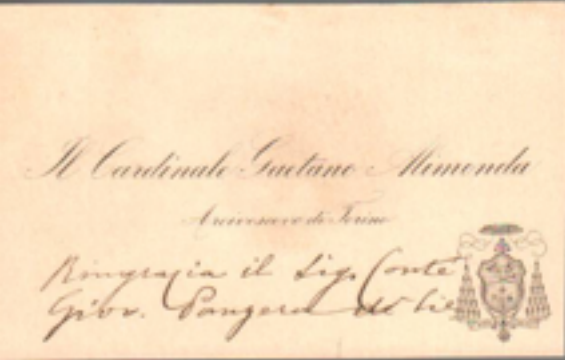 Il Cardinale Gaetano Alimonda
Arcivescovo di Torino
Ringrazia il Sig. Conte
Giov.